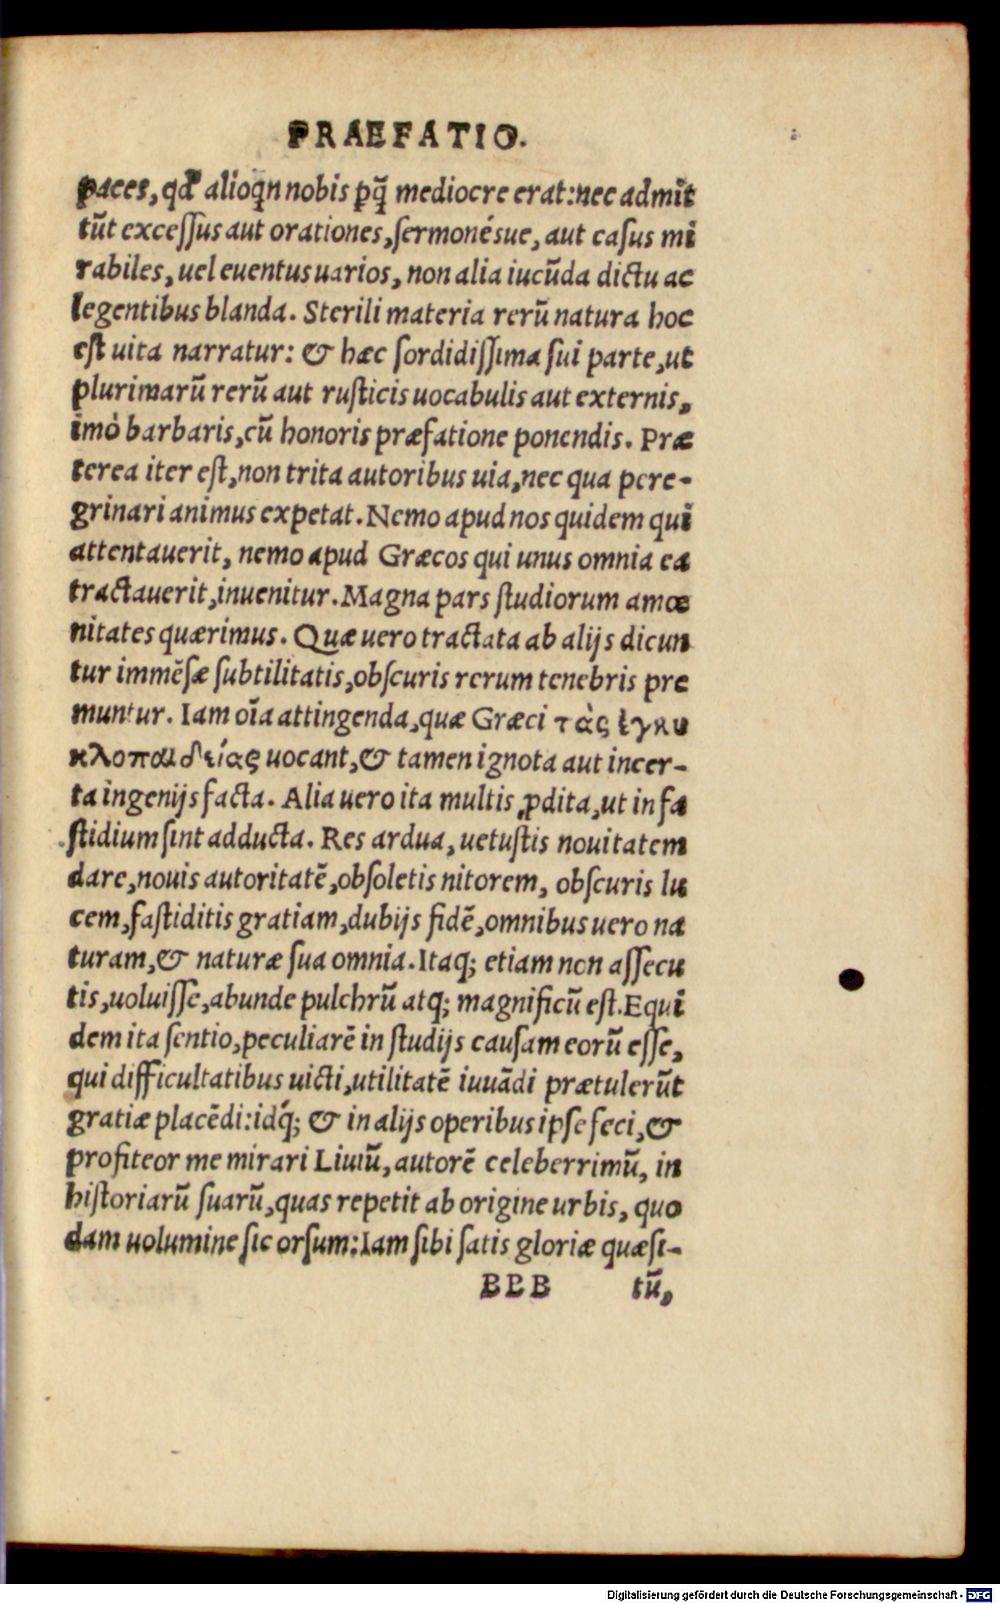 PRAEFATIO.
paces, qđ alioqn nobis ꝑq̃ mediocre erat: nec admit
tūt excessus aut orationes, sermonésue, aut casus mi
rabiles, uel euentus uarios, non alia iucūda dictu ac
legentibus blanda. Sterili materia rerū natura hoc
est uita narratur: & hæc sordidissima sui parte, ut
plurimarū rerū aut rusticis uocabulis aut externis,
imò barbaris, cū honoris præfatione ponendis. Præ
terea iter est, non trita autoribus uia, nec qua pere-
grinari animus expetat. Nemo apud nos quidem qui
attentauerit, nemo apud Græcos qui unus omnia ea
tractauerit, inuenitur. Magna pars studiorum amœ
nitates quærimus. Quæ uero tractata ab alijs dicun
tur immēsæ subtilitatis, obscuris rerum tenebris pre
muntur. Iam oīa attingenda, quæ Græci τὰς ἐγκυ
κλοπαιδείας uocant, & tamen ignota aut incer-
ta ingenijs facta. Alia uero ita multis ꝓdita, ut in fa
stidium sint adducta. Res ardua, uetustis nouitatem
dare, nouis autoritatē, obsoletis nitorem, obscuris lu
cem, fastiditis gratiam, dubijs fidē, omnibus uero na
turam, & naturæ sua omnia. Itaq; etiam non assecu
tis, uoluisse, abunde pulchrū atq; magnificū est. Equi
dem ita sentio, peculiarē in studijs causam eorū esse,
qui difficultatibus uicti, utilitatē iuuādi prætulerūt
gratiæ placēdi: idq́; & in alijs operibus ipse feci, &
profiteor me mirari Liuiū, autorē celeberrimū, in
historiarū suarū, quas repetit ab origine urbis, quo
dam uolumine sic orsum: Iam sibi satis gloriæ quæsi-
BBB tū,
Digitalisierung gefördert durch die Deutsche Forschungsgemeinschaft - DFG